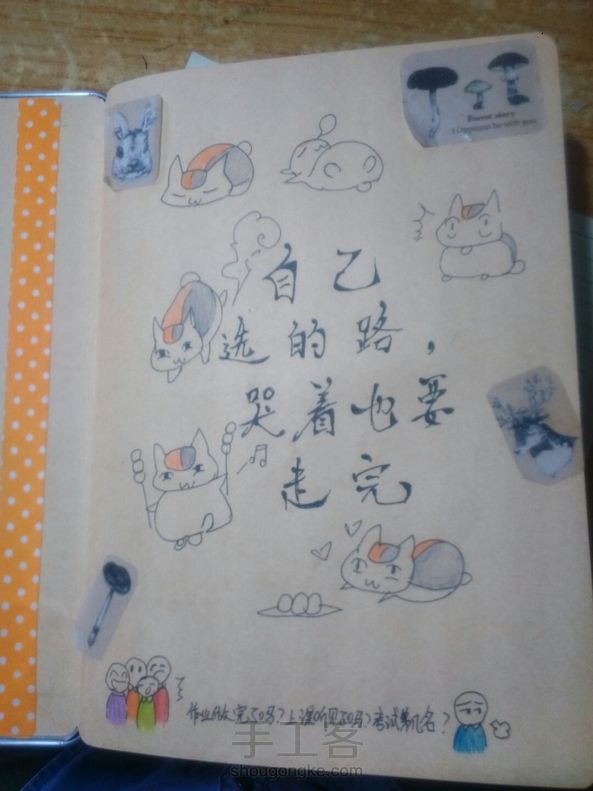 Forest story
Happiness be with you
自己
选的路，
哭着也要
走完
作业做完了吗？上课听见了吗？考试第几名？
手工客
shougongke.com